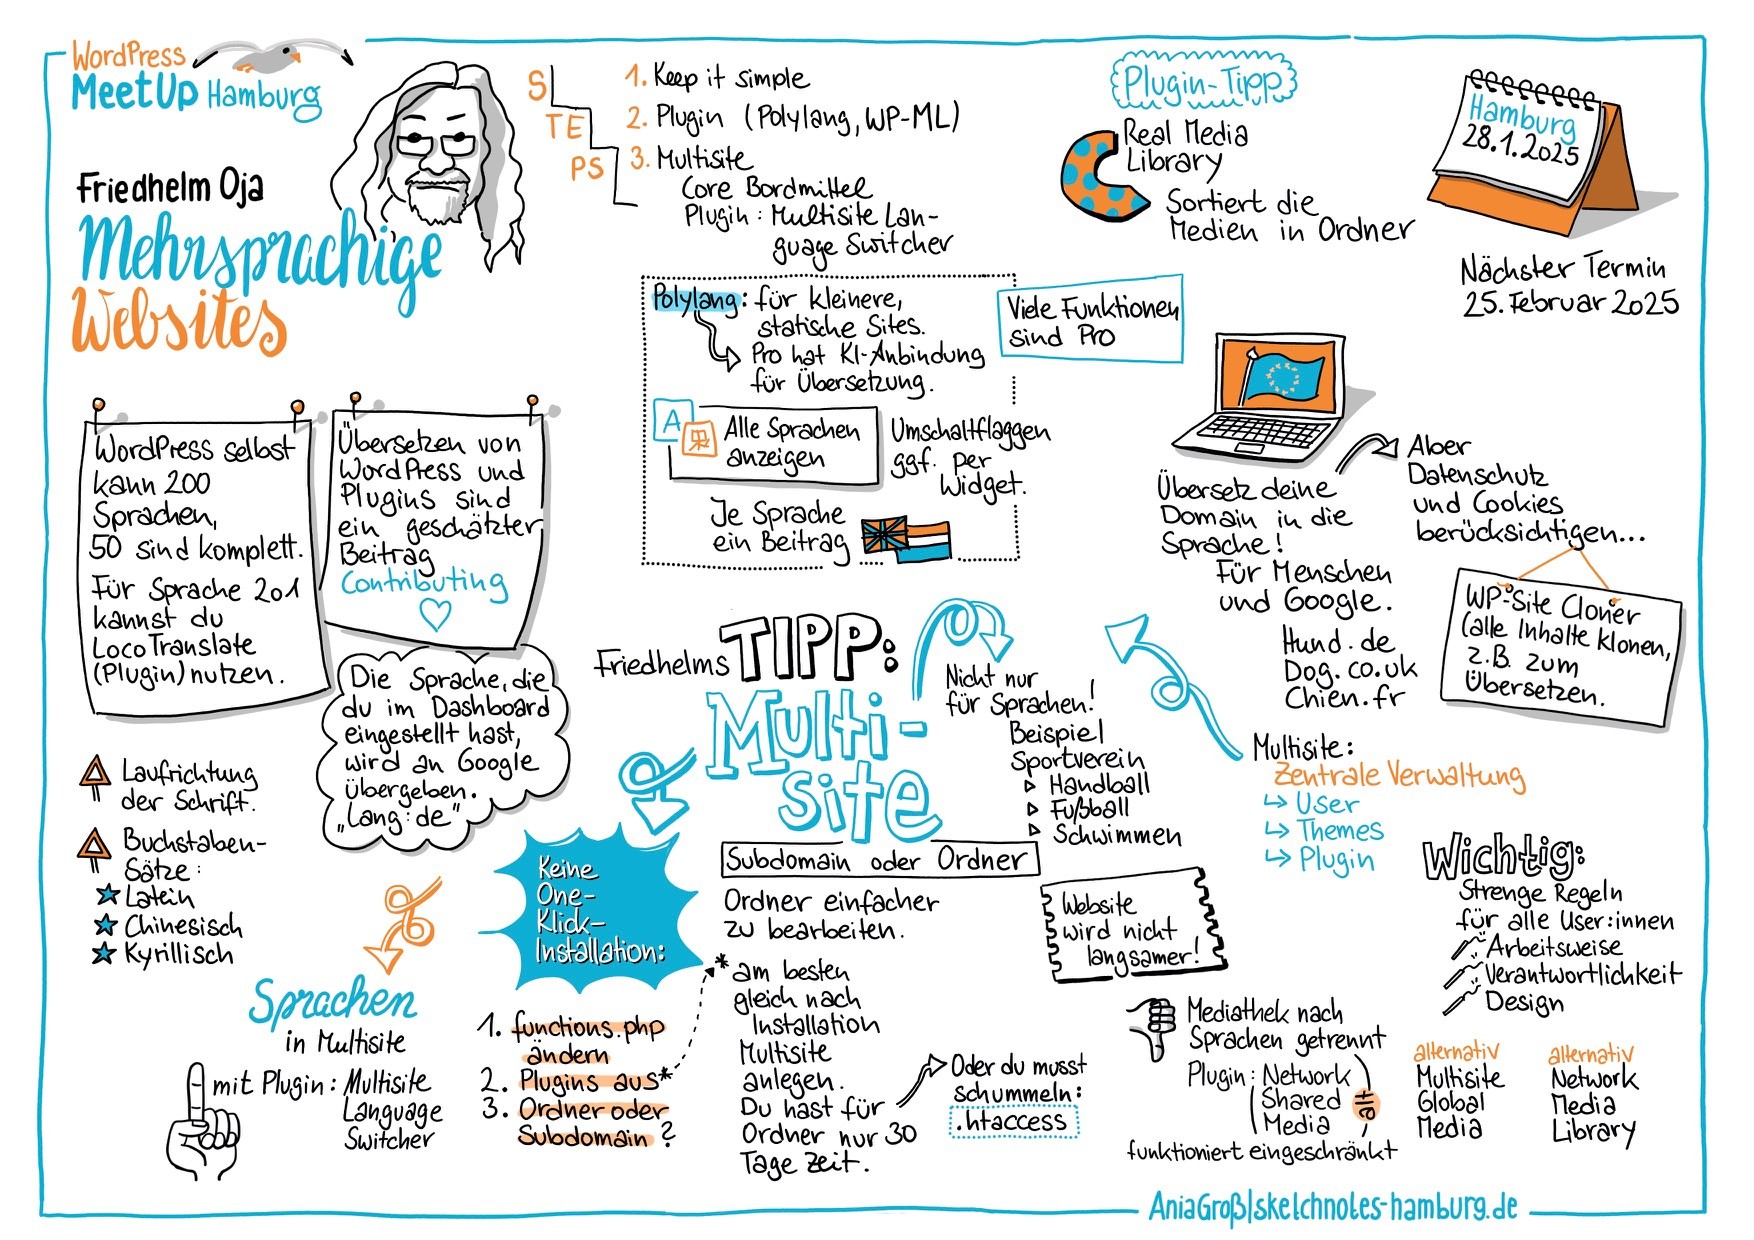 WordPress
MeetUp Hamburg
Friedhelm Oja
Mehrsprachige
Websites
S
TE
PS
1. Keep it simple
2. Plugin (Polylang, WP-ML)
3. Multisite
Core Bordmittel
Plugin: Multisite Lan-
guage Switcher
Plugin-Tipp
Real Media
Library
Sortiert die
Medien in Ordner
Hamburg
28.1.2025
Nächster Termin
25. Februar 2025
Polylang: für kleinere,
statische Sites.
Pro hat KI-Anbindung
für Übersetzung.
Viele Funktionen
sind Pro
A
Alle Sprachen
anzeigen
Umschaltflaggen
ggf. per
Widget.
Je Sprache
ein Beitrag
WordPress selbst
kann 200
Sprachen,
50 sind komplett.
Für Sprache 201
kannst du
LocoTranslate
(Plugin) nutzen.
Übersetzen von
WordPress und
Plugins sind
ein geschätzter
Beitrag
Contributing
Die Sprache, die
du im Dashboard
eingestellt hast,
wird an Google
übergeben.
„Lang:de"
Laufrichtung
der Schrift.
Buchstaben-
Sätze:
Latein
Chinesisch
Kyrillisch
Übersetz deine
Domain in die
Sprache!
Für Menschen
und Google.
Hund.de
Dog.co.uk
Chien.fr
Aber
Datenschutz
und Cookies
berücksichtigen...
WP-Site Cloner
(alle Inhalte klonen,
z.B. zum
Übersetzen.
Friedhelms TIPP:
Multi-
site
Nicht nur
für Sprachen!
Beispiel
Sportverein
Handball
Fußball
Schwimmen
Multisite:
Zentrale Verwaltung
User
Themes
Plugin
Subdomain oder Ordner
Ordner einfacher
zu bearbeiten.
Website
wird nicht
langsamer!
Keine
One-
Klick-
Installation:
1. functions.php
ändern
2. Plugins aus*
3. Ordner oder
Subdomain?
* am besten
gleich nach
Installation
Multisite
anlegen.
Du hast für
Ordner nur 30
Tage Zeit.
Oder du musst
schummeln:
.htaccess
Sprachen
in Multisite
mit Plugin: Multisite
Language
Switcher
Wichtig:
Strenge Regeln
für alle User:innen
Arbeitsweise
Verantwortlichkeit
Design
Mediathek nach
Sprachen getrennt
Plugin: Network
Shared
Media
alt
funktioniert eingeschränkt
alternativ
Multisite
Global
Media
alternativ
Network
Media
Library
AniaGroß|sketchnotes-hamburg.de